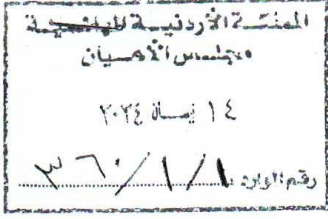 المملكة الأردنية الهاشمية
مجلس الأعيان
١٤ نيسان ٢٠٢٤
رقم الوارد ٣٦٠/١/١